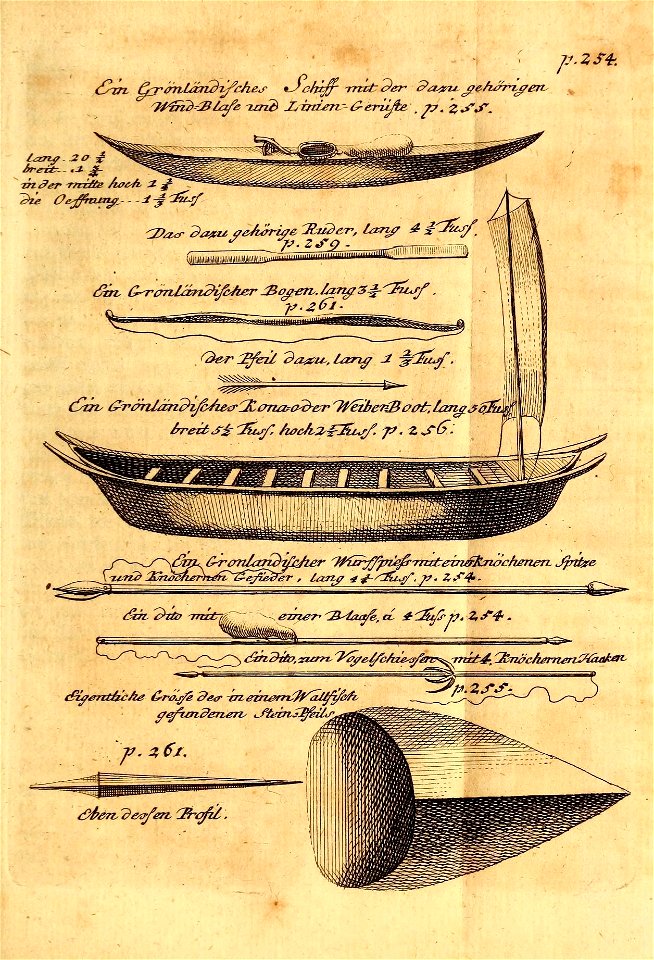 p. 254.
Ein Grönländisches Schiff mit der dazu gehörigen
Wind-Blase und Linien-Gerüste. p. 255.
lang. 20 ½
breit... 1 ½
in der mitte hoch 1 ¼
die Oeffnung... 1 ⅓ Fuss
Das dazu gehörige Ruder, lang 4 ½ Fuss.
p. 259.
Ein Grönländischer Bogen, lang 3 ½ Fuss.
p. 261.
der Pfeil dazu, lang 1 ⅔ Fuss.
Ein Grönländisches Kona-oder Weiber-Boot, lang 50 Fuss
breit 5 ½ Fuss. hoch 2 ½ Fuss. p. 256.
Ein Gronlandischer Wurffspiess mit einer knöchenen Spitze
und Knöchernen Gefieder, lang 4 Fuss. p. 254.
Ein dito mit einer Blaase, á 4 Fuss p. 254.
Ein dito, zum Vogelschiessen mit 4 Knöchernen Haaken
p. 255.
Eigentliche Grösse des in einem Wallfisch
gefundenen Stein-Pfeils
p. 261.
Eben dessen Profil.